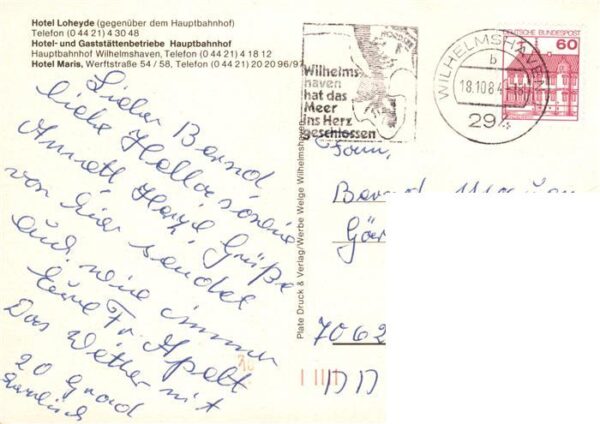 Hotel Loheyde (gegenüber dem Hauptbahnhof)
Telefon (0 44 21) 4 30 48
Hotel- und Gaststättenbetriebe Hauptbahnhof
Hauptbahnhof Wilhelmshaven, Telefon (0 44 21) 4 18 12
Hotel Maris, Werftstraße 54 / 58, Telefon (0 44 21) 20 20 96/97
Lieber Bernd
liebe
Annett Herzl Grüße
von hier sendet
Euch wie immer
Eure Fr. Apelt
Das Wetter ist
20 Grad
Wilhelms-
haven
hat das
Meer
ins Herz
geschlossen
WILHELMSHAVEN
b
18.10.84
294
DEUTSCHE BUNDESPOST
60
Plate Druck & Verlag/Werbe Welge Wilhelmshaven
Fam.
Bernd
7062
DD